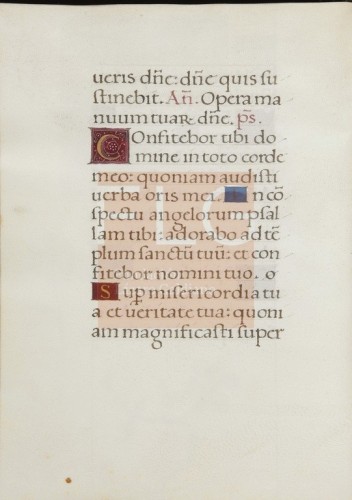 ueris dñe: dñe quis su
stinebit. Añ. Opera ma
nuum tuaꝝ dñe. ps.
Confitebor tibi do
mine in toto corde
meo: quoniam audisti
uerba oris mei. In cõ
spectu angelorum psal
lam tibi: adorabo ad tẽ
plum sanctũ tuũ: et con
fitebor nomini tuo. o
Sup misericordia tu
a et ueritate tua: quoni
am magnificasti super